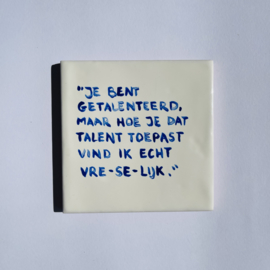 "JE BENT
GETALENTEERD,
MAAR HOE JE DAT
TALENT TOEPAST
VIND IK ECHT
VRE-SE-LIJK."